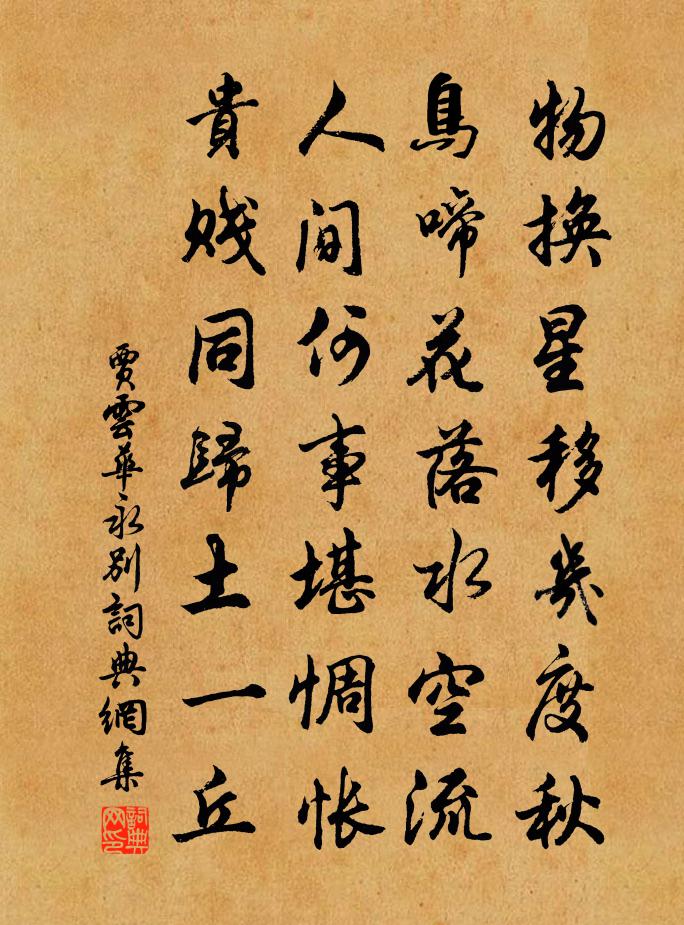 物換星移幾度秋
鳥啼花落水空流
人間何事堪惆悵
貴賤同歸土一丘
賈雲華永別詞典網集
詞典网印